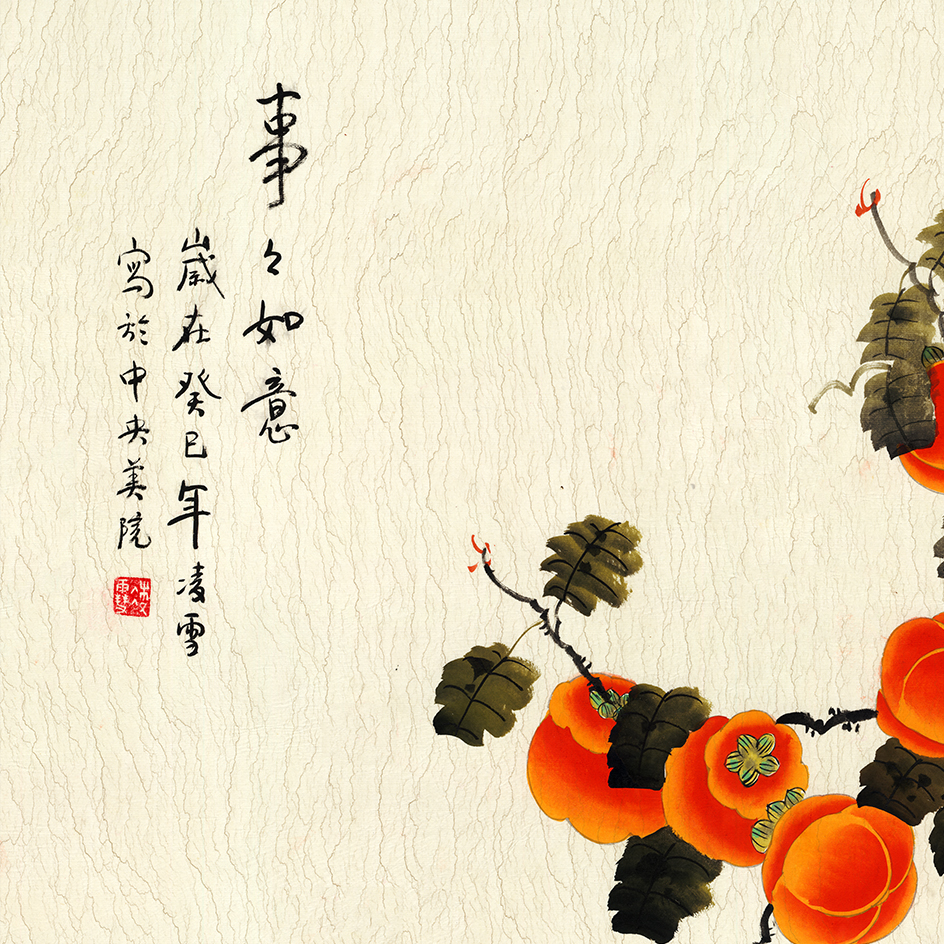 事々如意
歲在癸巳年凌雪
寫於中央美院